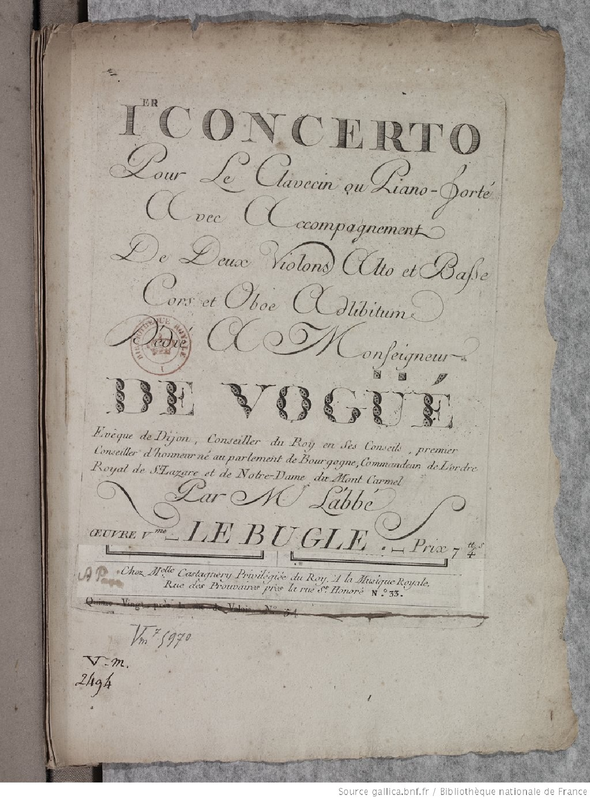 I.ER CONCERTO
Pour Le Clavecin ou Piano-forté
Avec Accompagnement
De Deux Violons Alto et Basse
Cors et Oboe Adlibitum
Dédié A Monseigneur
DE VOGÜÉ
Evêque de Dijon, Conseiller du Roÿ en ses Conseils, premier
Conseiller d'honneur né au parlement de Bourgogne, Commandeur de L'ordre
Royal de St. Lazare et de Notre-Dame du Mont Carmel
Par Mr. L'abbé
ŒUVRE V.me LE BUGLE. Prix 7tt 4s
A Paris
Chez Melle Castagnery Privilégiée du Roy, A la Musique Royale,
Rue des Prouvaires près la rue St Honoré N.º 33.
BIBLIOTHEQUE ROYALE
Vm7 5970
V.m.
2494
Source gallica.bnf.fr / Bibliothèque nationale de France